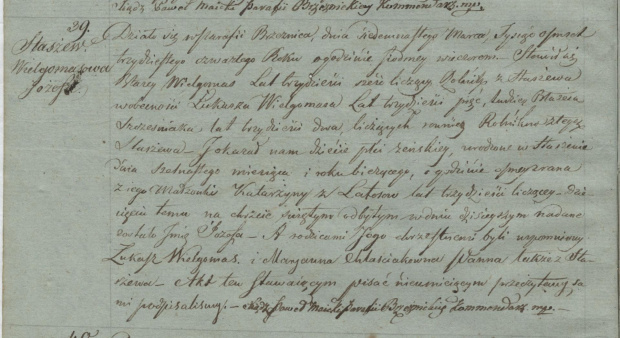 Xiądz Paweł Maiték Parafii Brzeznickiey Kommendarz. mp.
39.
Staszew.
Wielgomasowa
Józefa
Działo się w Parafii Brzeznica, dnia siedemnastego Marca, Tysiąc ośmset
trzydziestego czwartego Roku o godzinie siodmey wieczorem. Stawił się
Błażey Wielgomas Lat trzydzieści sześć liczący Rolnik z Staszewa
w obecności Łukasza Wielgomasa Lat trzydzieści pięć, tudzież Błażeia
Szcześniaka, lat trzydzieści dwa, liczących również Rolników z tegoż
Staszewa – i okazał nam dziécie płci zeńskiey, urodzone w Staszewie
dnia szesnastego miesiąca i roku bieżącego, o godzinie osmey z rana
z iego Małżonki Katarzyny z Latosów lat trzydzieści liczącey – Dzie-
cięciu temu na chrzcie świętym odbytym w dniu dzisieyszym nadane
zostało Imię Józefa – A rodzicami Jego chrzestnemi byli wspomniony
Łukasz Wielgomas, i Maryanna Panna także z Sta-
szewa – Akt ten stawaiącym pisać nieumieiącym przeczytany, sa-
mi podpisaliśmy. – Xiądz Paweł Maiték Parafii Brzeznickiey Kommendarz. mp. –